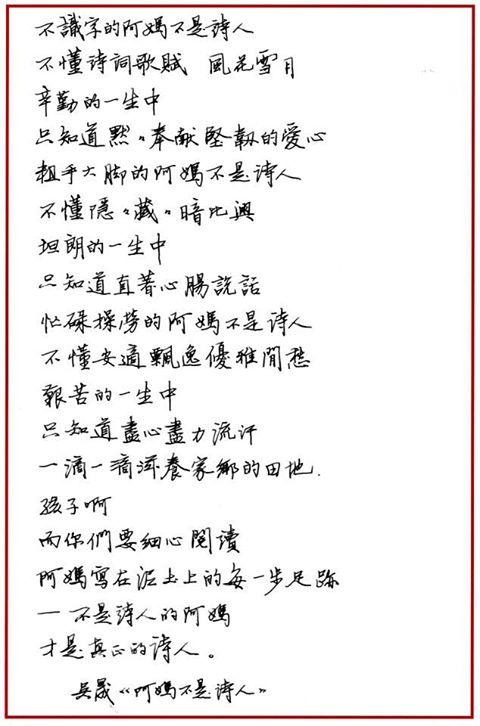 不識字的阿媽不是詩人
不懂詩詞歌賦 風花雪月
辛勤的一生中
只知道默々奉献堅韌的愛心
粗手大脚的阿媽不是詩人
不懂隱々藏々暗比興
坦朗的一生中
只知道直著心腸說話
忙碌操勞的阿媽不是詩人
不懂安適飄逸優雅閒愁
艱苦的一生中
只知道盡心盡力流汗
一滴一滴滋養家鄉的田地.
孩子啊
而你們要細心閱讀
阿媽寫在泥土上的每一步足跡
— 不是詩人的阿媽
才是真正的詩人。
吳晟《阿媽不是詩人》